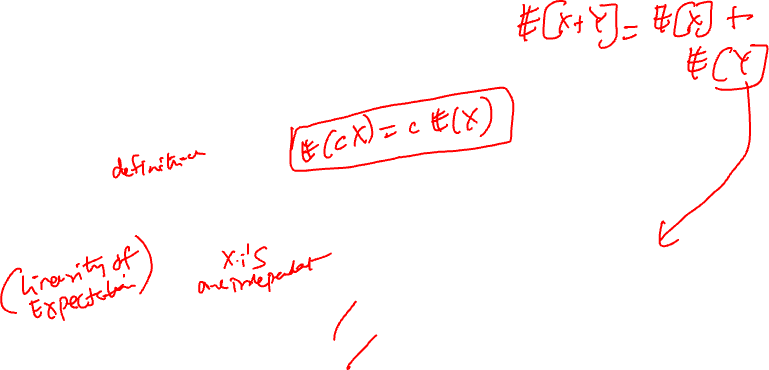 E[X+Y] = E[X] +
E[Y]
E(cX) = c E(X)
definition
(linearity of
Expectation)
Xi's
are independent